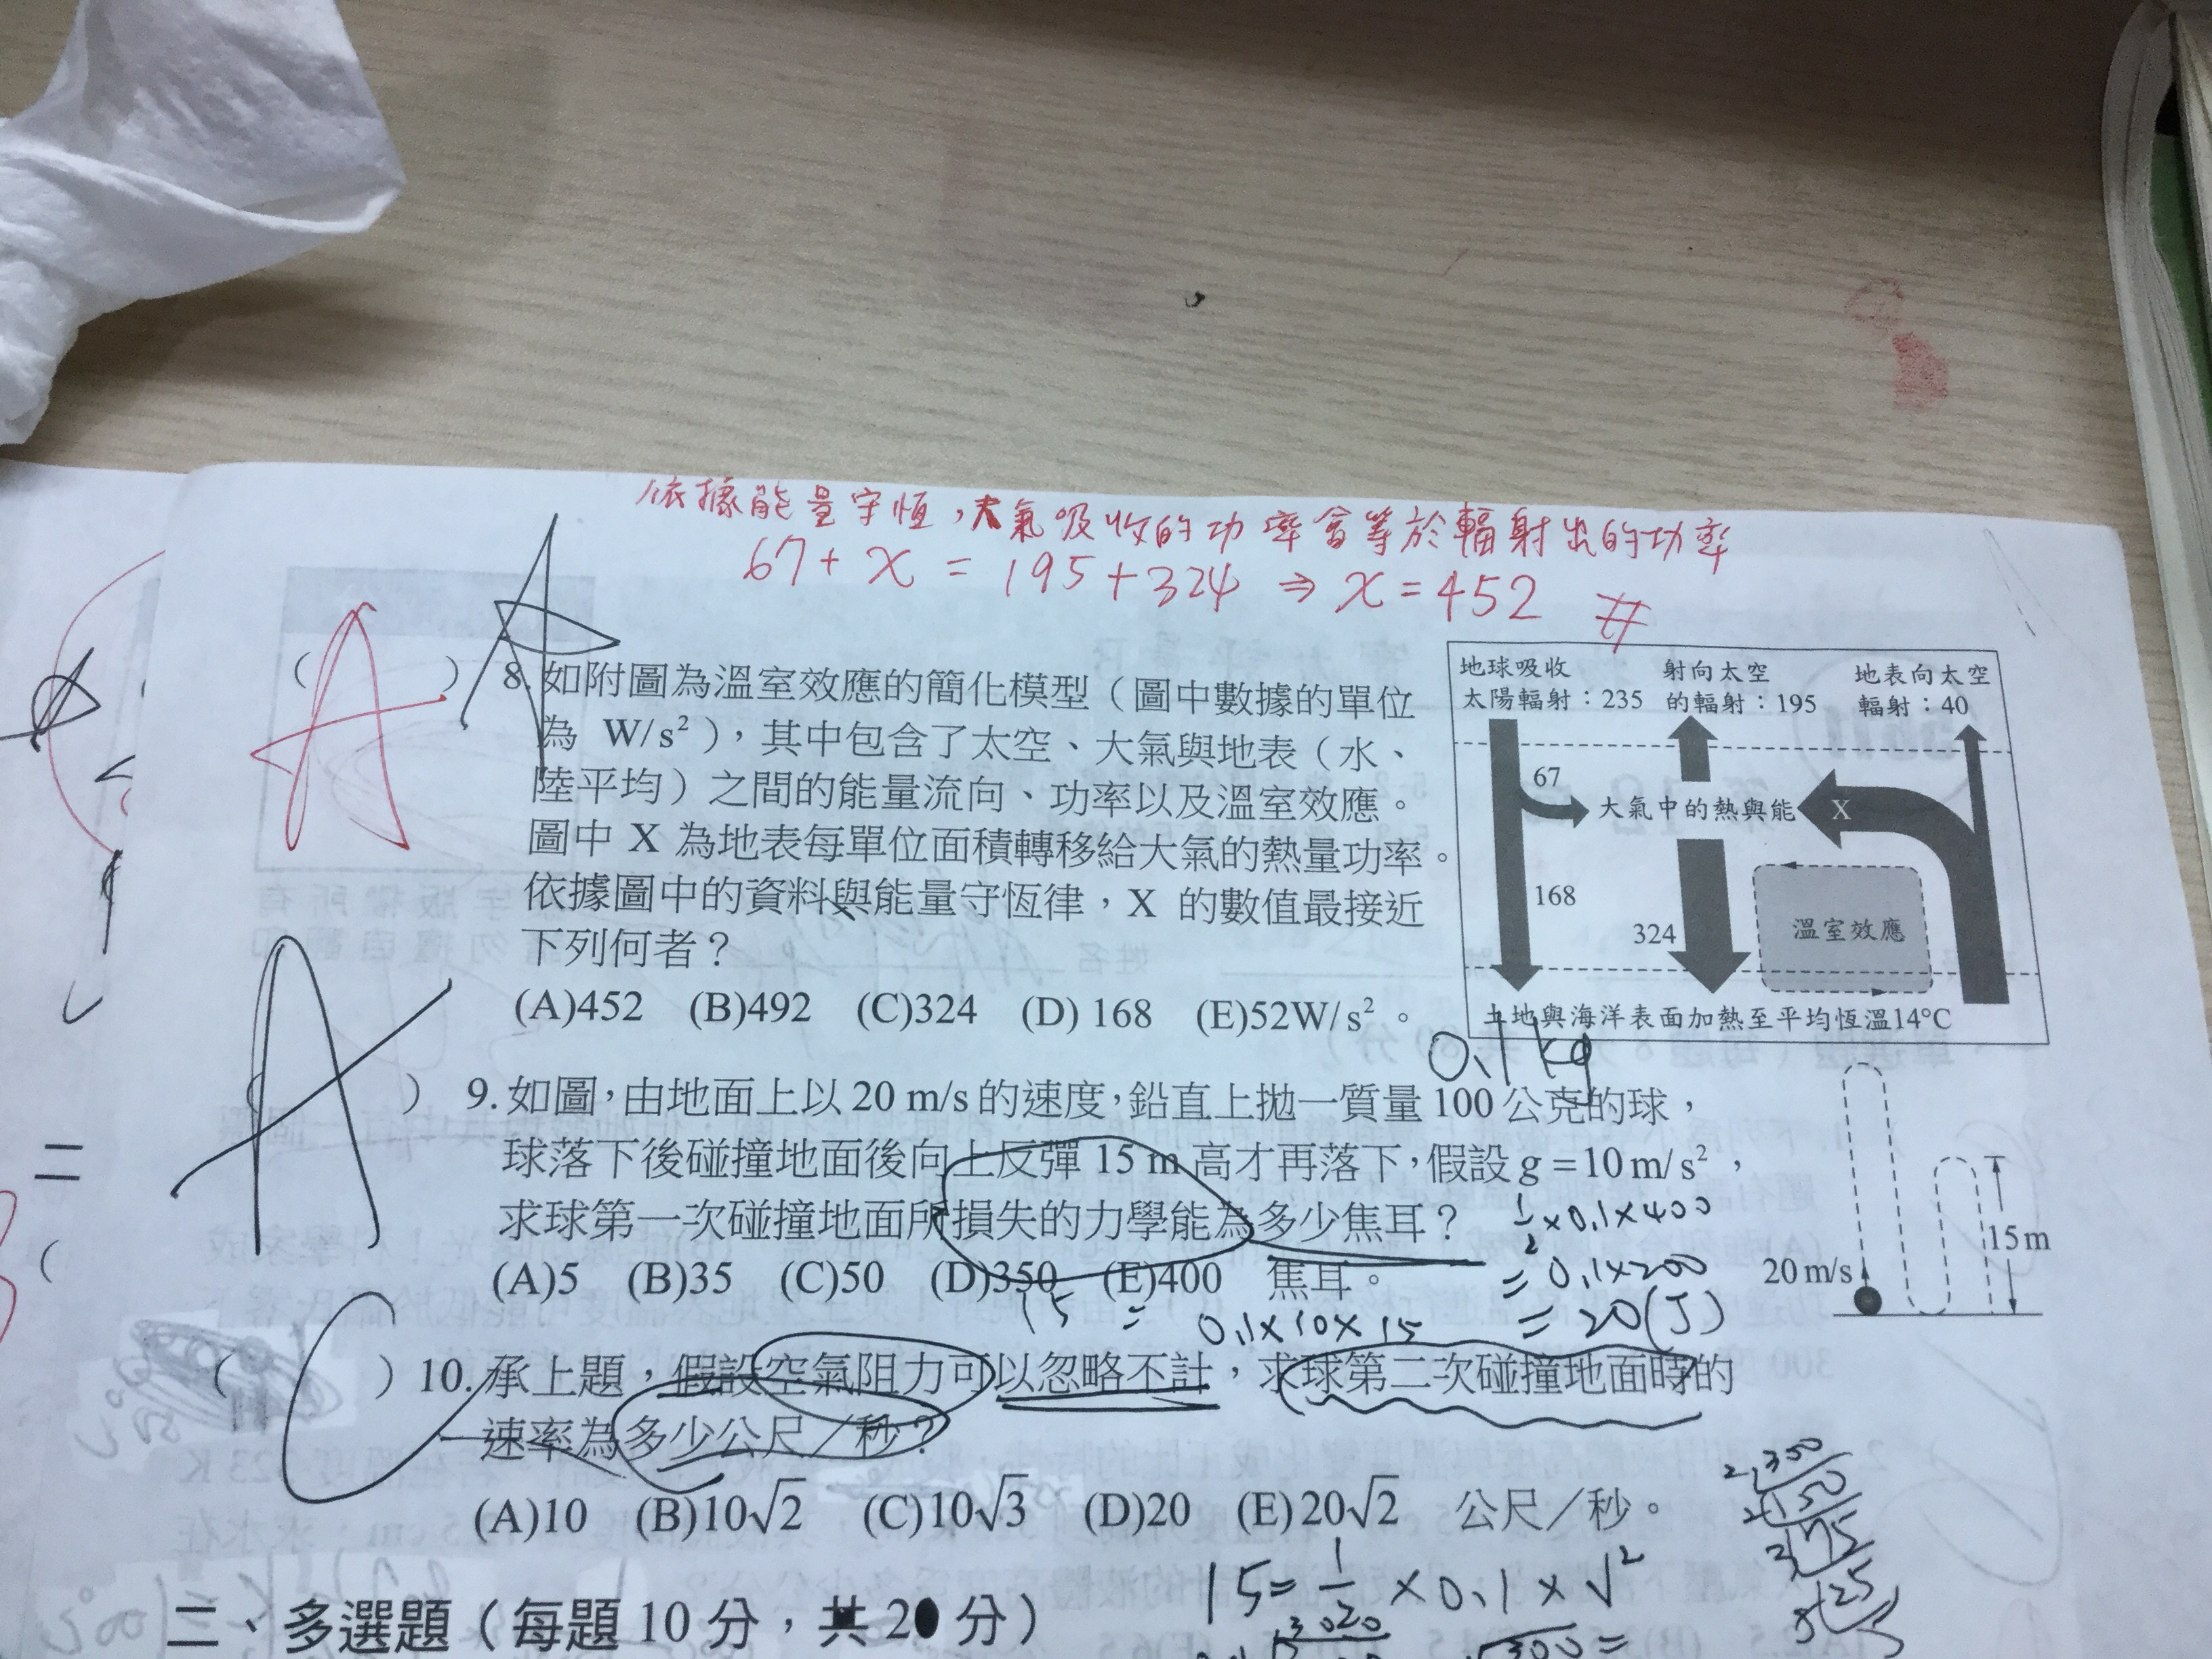 依據能量守恆，大氣吸收的功率會等於輻射出的功率
67+x=195+324⇒x=452 #
( A ) A 8. 如附圖為溫室效應的簡化模型（圖中數據的單位
為 W/s²），其中包含了太空、大氣與地表（水、
陸平均）之間的能量流向、功率以及溫室效應。
圖中 X 為地表每單位面積轉移給大氣的熱量功率。
依據圖中的資料與能量守恆律，X 的數值最接近
下列何者？
(A)452 (B)492 (C)324 (D) 168 (E)52W/s²。
地球吸收
太陽輻射：235
射向太空
的輻射：195
地表向太空
輻射：40
67
大氣中的熱與能
X
168
324
溫室效應
土地與海洋表面加熱至平均恆溫14°C
0.1kg
( A ) 9. 如圖，由地面上以 20 m/s 的速度，鉛直上拋一質量 100 公克的球，
球落下後碰撞地面後向上反彈 15 m 高才再落下，假設 g=10 m/s²，
求球第一次碰撞地面所損失的力學能為多少焦耳？
(A)5 (B)35 (C)50 (D)350 (E)400 焦耳。
½×0.1×400
=0.1×200
=20(J)
15 = 0.1×10×15
20 m/s
15 m
( C ) 10. 承上題，假設空氣阻力可以忽略不計，求球第二次碰撞地面時的
速率為多少公尺／秒？
(A)10 (B)10√2 (C)10√3 (D)20 (E)20√2 公尺／秒。
二、多選題（每題 10 分，共 20 分）